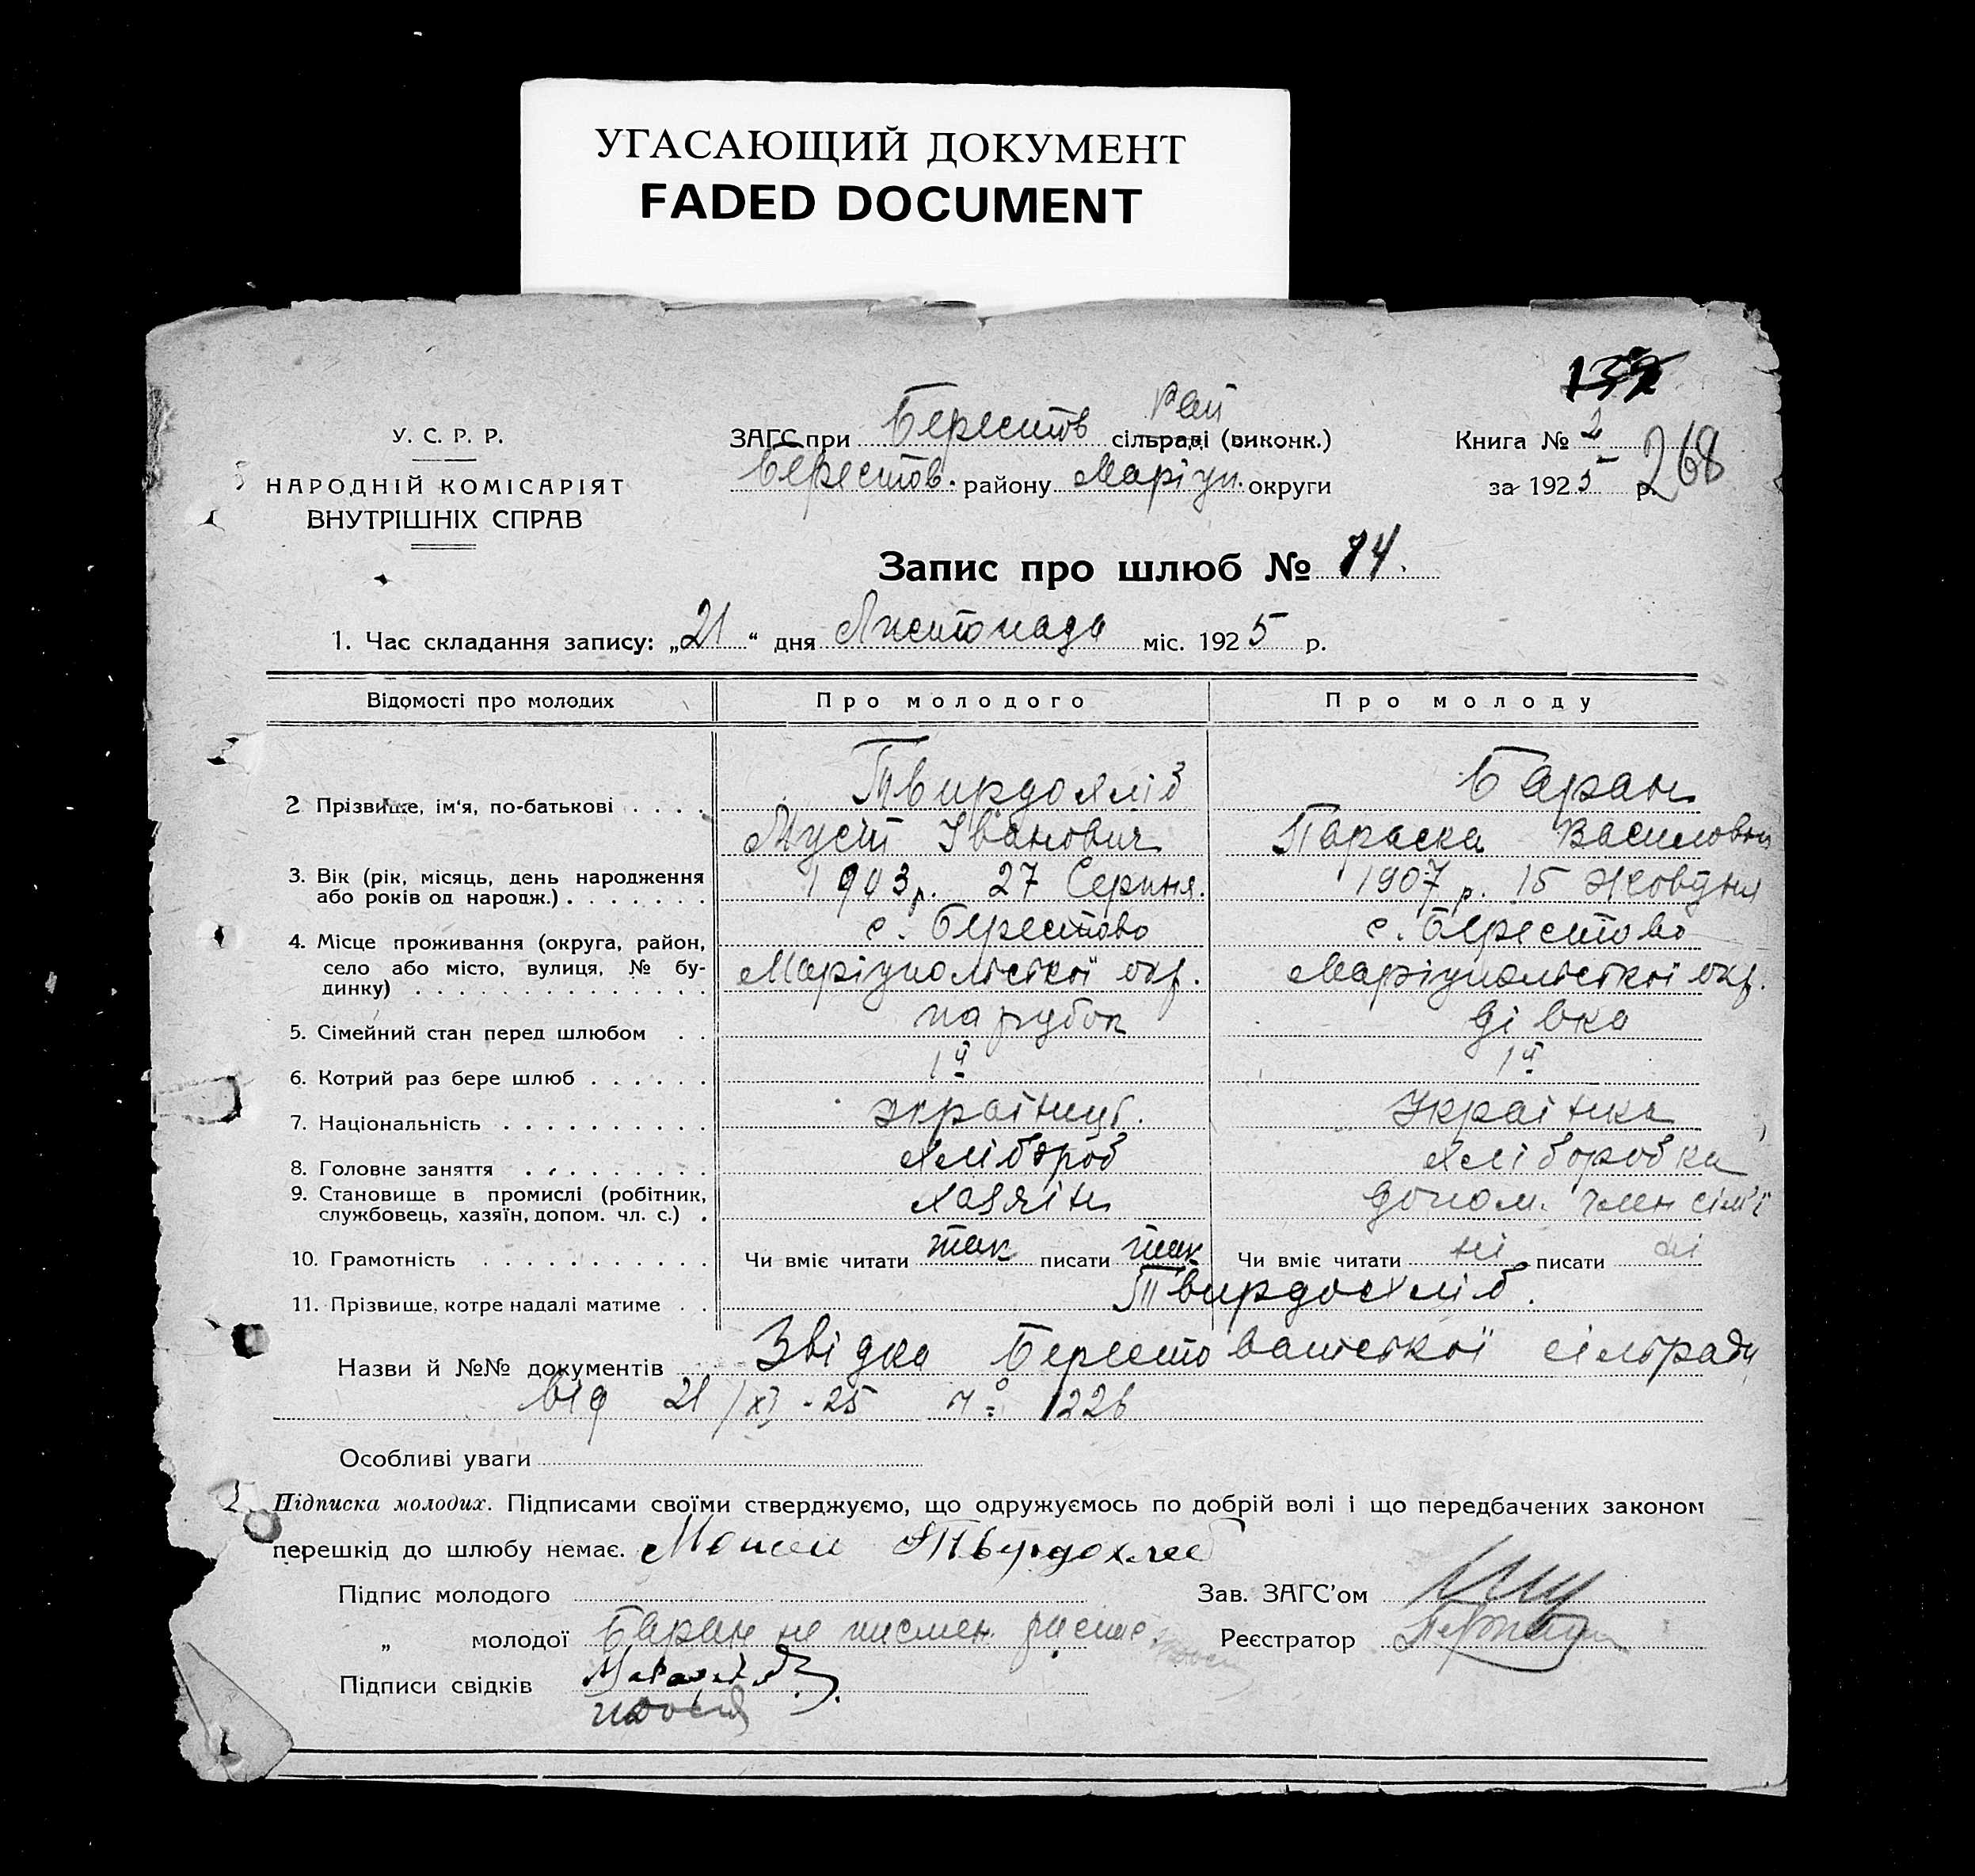 УГАСАЮЩИЙ ДОКУМЕНТ
FADED DOCUMENT
У. С. Р. Р.
НАРОДНІЙ КОМІСАРІЯТ
ВНУТРІШНІХ СПРАВ
рай
ЗАГС при Берестов сільраді (виконк.)
Берестов. району Маріуп. округи
Книга № 2
за 1925 р.
268
Запис про шлюб № 74.
1. Час складання запису: „21" дня Листопада міс. 1925 р.
Відомості про молодих Про молодого Про молоду
2 Прізвище, ім'я, по-батькові . . . . Твирдохліб Баран
Мусій Іванович Параска Василовна
3. Вік (рік, місяць, день народження 1903 р. 27 Серпня. 1907 р. 15 Жовтня
або років од народж.) . . . . . . .
с. Берестово с. Берестово
4. Місце проживання (округа, район,
село або місто, вулиця, № бу- Маріупольської окр. Маріупольської окр.
динку) . . . . . . . . . . . . . .
5. Сімейний стан перед шлюбом . . парубок дівка
6. Котрий раз бере шлюб . . . . . . 1й 1й
7. Національність . . . . . . . . . . українць. Українка
8. Головне заняття . . . . . . . . . хлібороб хліборобка
9. Становище в промислі (робітник, хазяїн допом. член сім'ї
службовець, хазяїн, допом. чл. с.) .
10. Грамотність . . . . . . . . . . . Чи вміє читати так писати так Чи вміє читати ні писати ні
11. Прізвище, котре надалі матиме . . Твирдохліб.
Назви й №№ документів Звідка Берестоватської сільради
від 21/XI-25 № 1226
Особливі уваги
Підписка молодих. Підписами своїми стверджуємо, що одружуємось по добрій волі і що передбачених законом
перешкід до шлюбу немає. Мосий Твердохлеб
Підпис молодого Зав. ЗАГС'ом
„ молодої Баран не письмен. Реєстратор
Підписи свідків